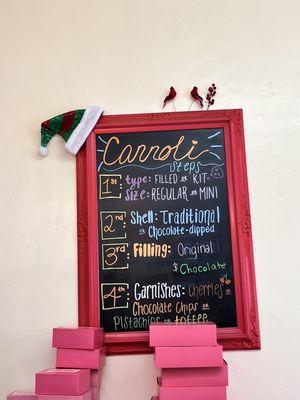 Carroli
Steps
1st
type: FILLED or KIT
Size: REGULAR or MINI
2nd
Shell: Traditional
or
Chocolate-dipped
3rd
Filling: Original
& Chocolate
4th
Garnishes: Cherries
Chocolate Chips or
Pistachios or toffee